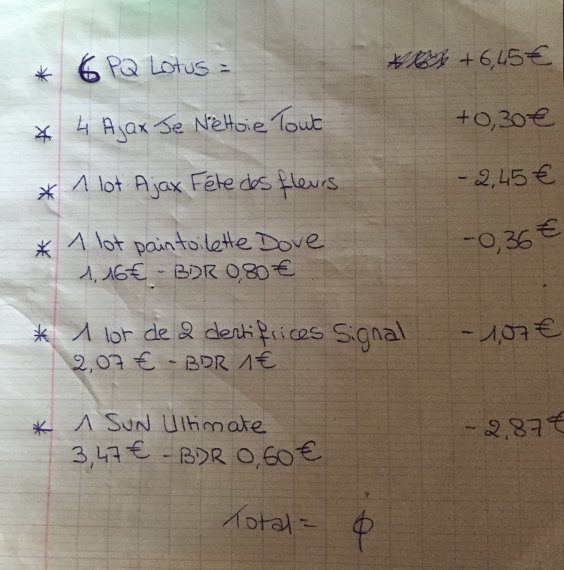 * 6 PQ Lotus = +6,45€
* 4 Ajax Je Nettoie Tout +0,30€
* 1 lot Ajax Fête des fleurs -2,45€
* 1 lot pain toilette Dove -0,36€
1,16€ - BDR 0,80€
* 1 lot de 2 dentifrices Signal -1,07€
2,07€ - BDR 1€
* 1 SUN Ultimate -2,87€
3,47€ - BDR 0,60€
Total = ϕ